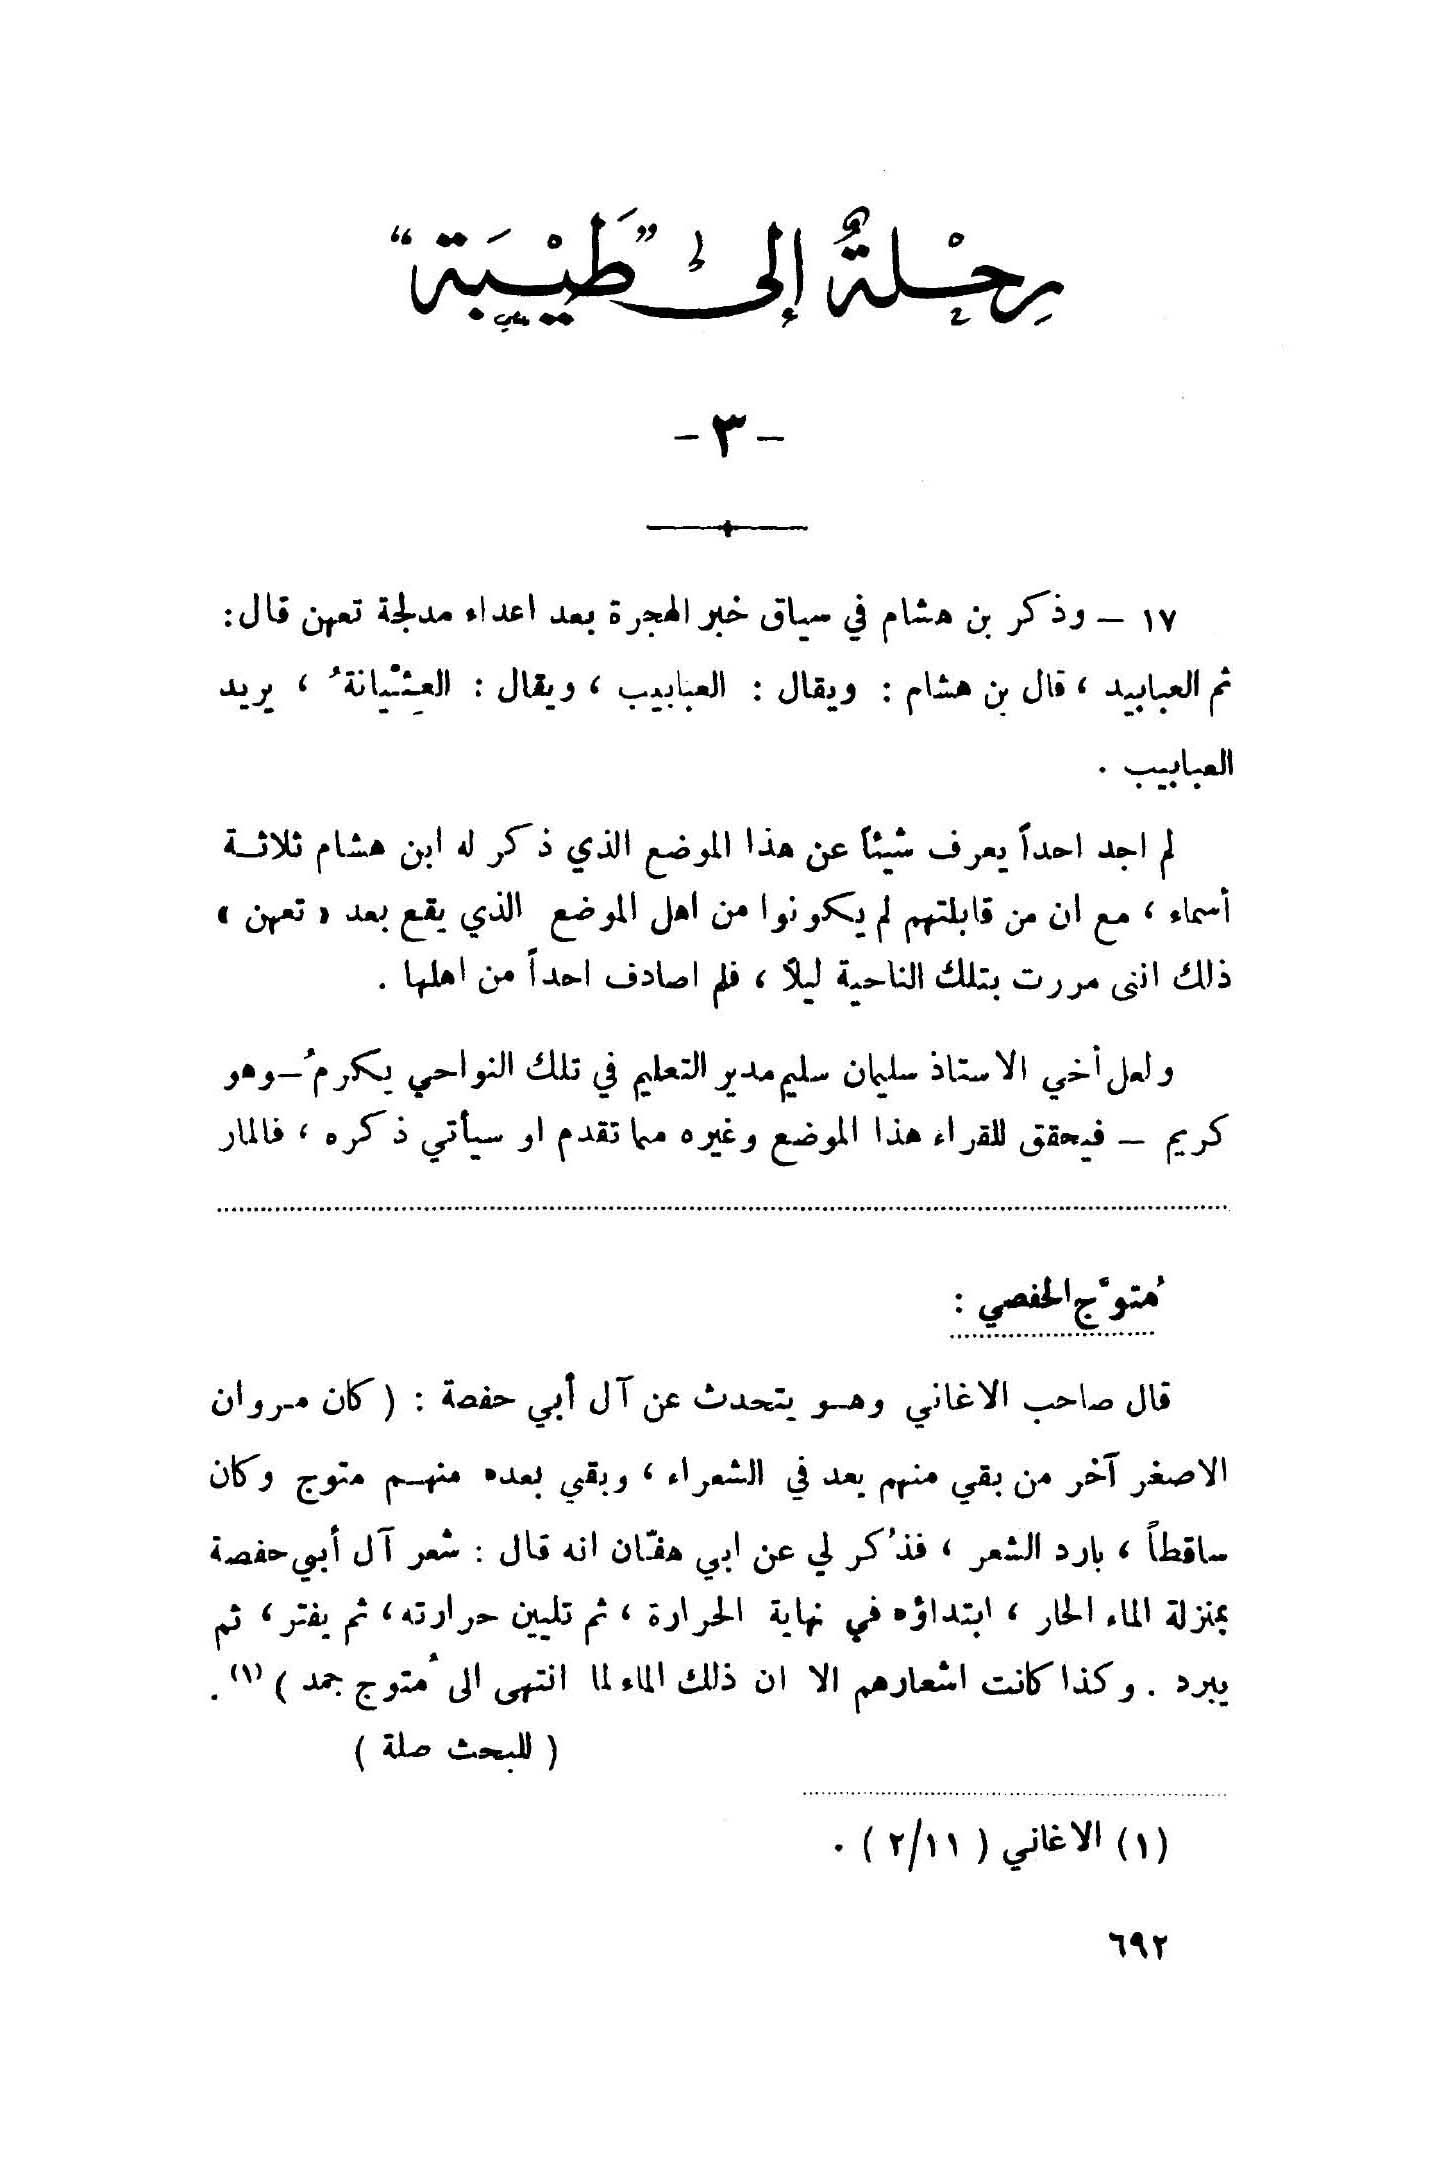 رِحْلةٌ إلى "طَيْبَة"
- ٣ -
١٧ – وذكر بن هشام في سياق خبر الهجرة بعد اعداء مدلجة تعهن قال:
ثم العبابيد ، قال بن هشام : ويقال : العبابيب ، ويقال : العِثْيانةُ ، يريد
العبابيب .
لم اجد احداً يعرف شيئاً عن هذا الموضع الذي ذكر له ابن هشام ثلاثة
أسماء ، مع ان من قابلتهم لم يكونوا من اهل الموضع الذي يقع بعد « تعهن »
ذلك انني مررت بتلك الناحية ليلاً ، فلم اصادف احداً من اهلها .
ولعل أخي الاستاذ سليمان سليم مدير التعليم في تلك النواحي يكرمُ – وهو
كريم – فيحقق للقراء هذا الموضع وغيره مما تقدم او سيأتي ذكره ، فالمار
مُتوّج الحفصي :
قال صاحب الاغاني وهو يتحدث عن آل أبي حفصة : ( كان مروان
الاصغر آخر من بقي منهم يعد في الشعراء ، وبقي بعده منهم متوج وكان
ساقطاً ، بارد الشعر ، فذُكر لي عن ابي هفّان انه قال : شعر آل أبي حفصة
بمنزلة الماء الحار ، ابتداؤه في نهاية الحرارة ، ثم تليين حرارته ، ثم يفتر ، ثم
يبرد . وكذا كانت اشعارهم الا ان ذلك الماء لما انتهى الى مُتوج جمد ) (١) .
( للبحث صلة )
(١) الاغاني ( ٢/١١ ) .
٦٩٢